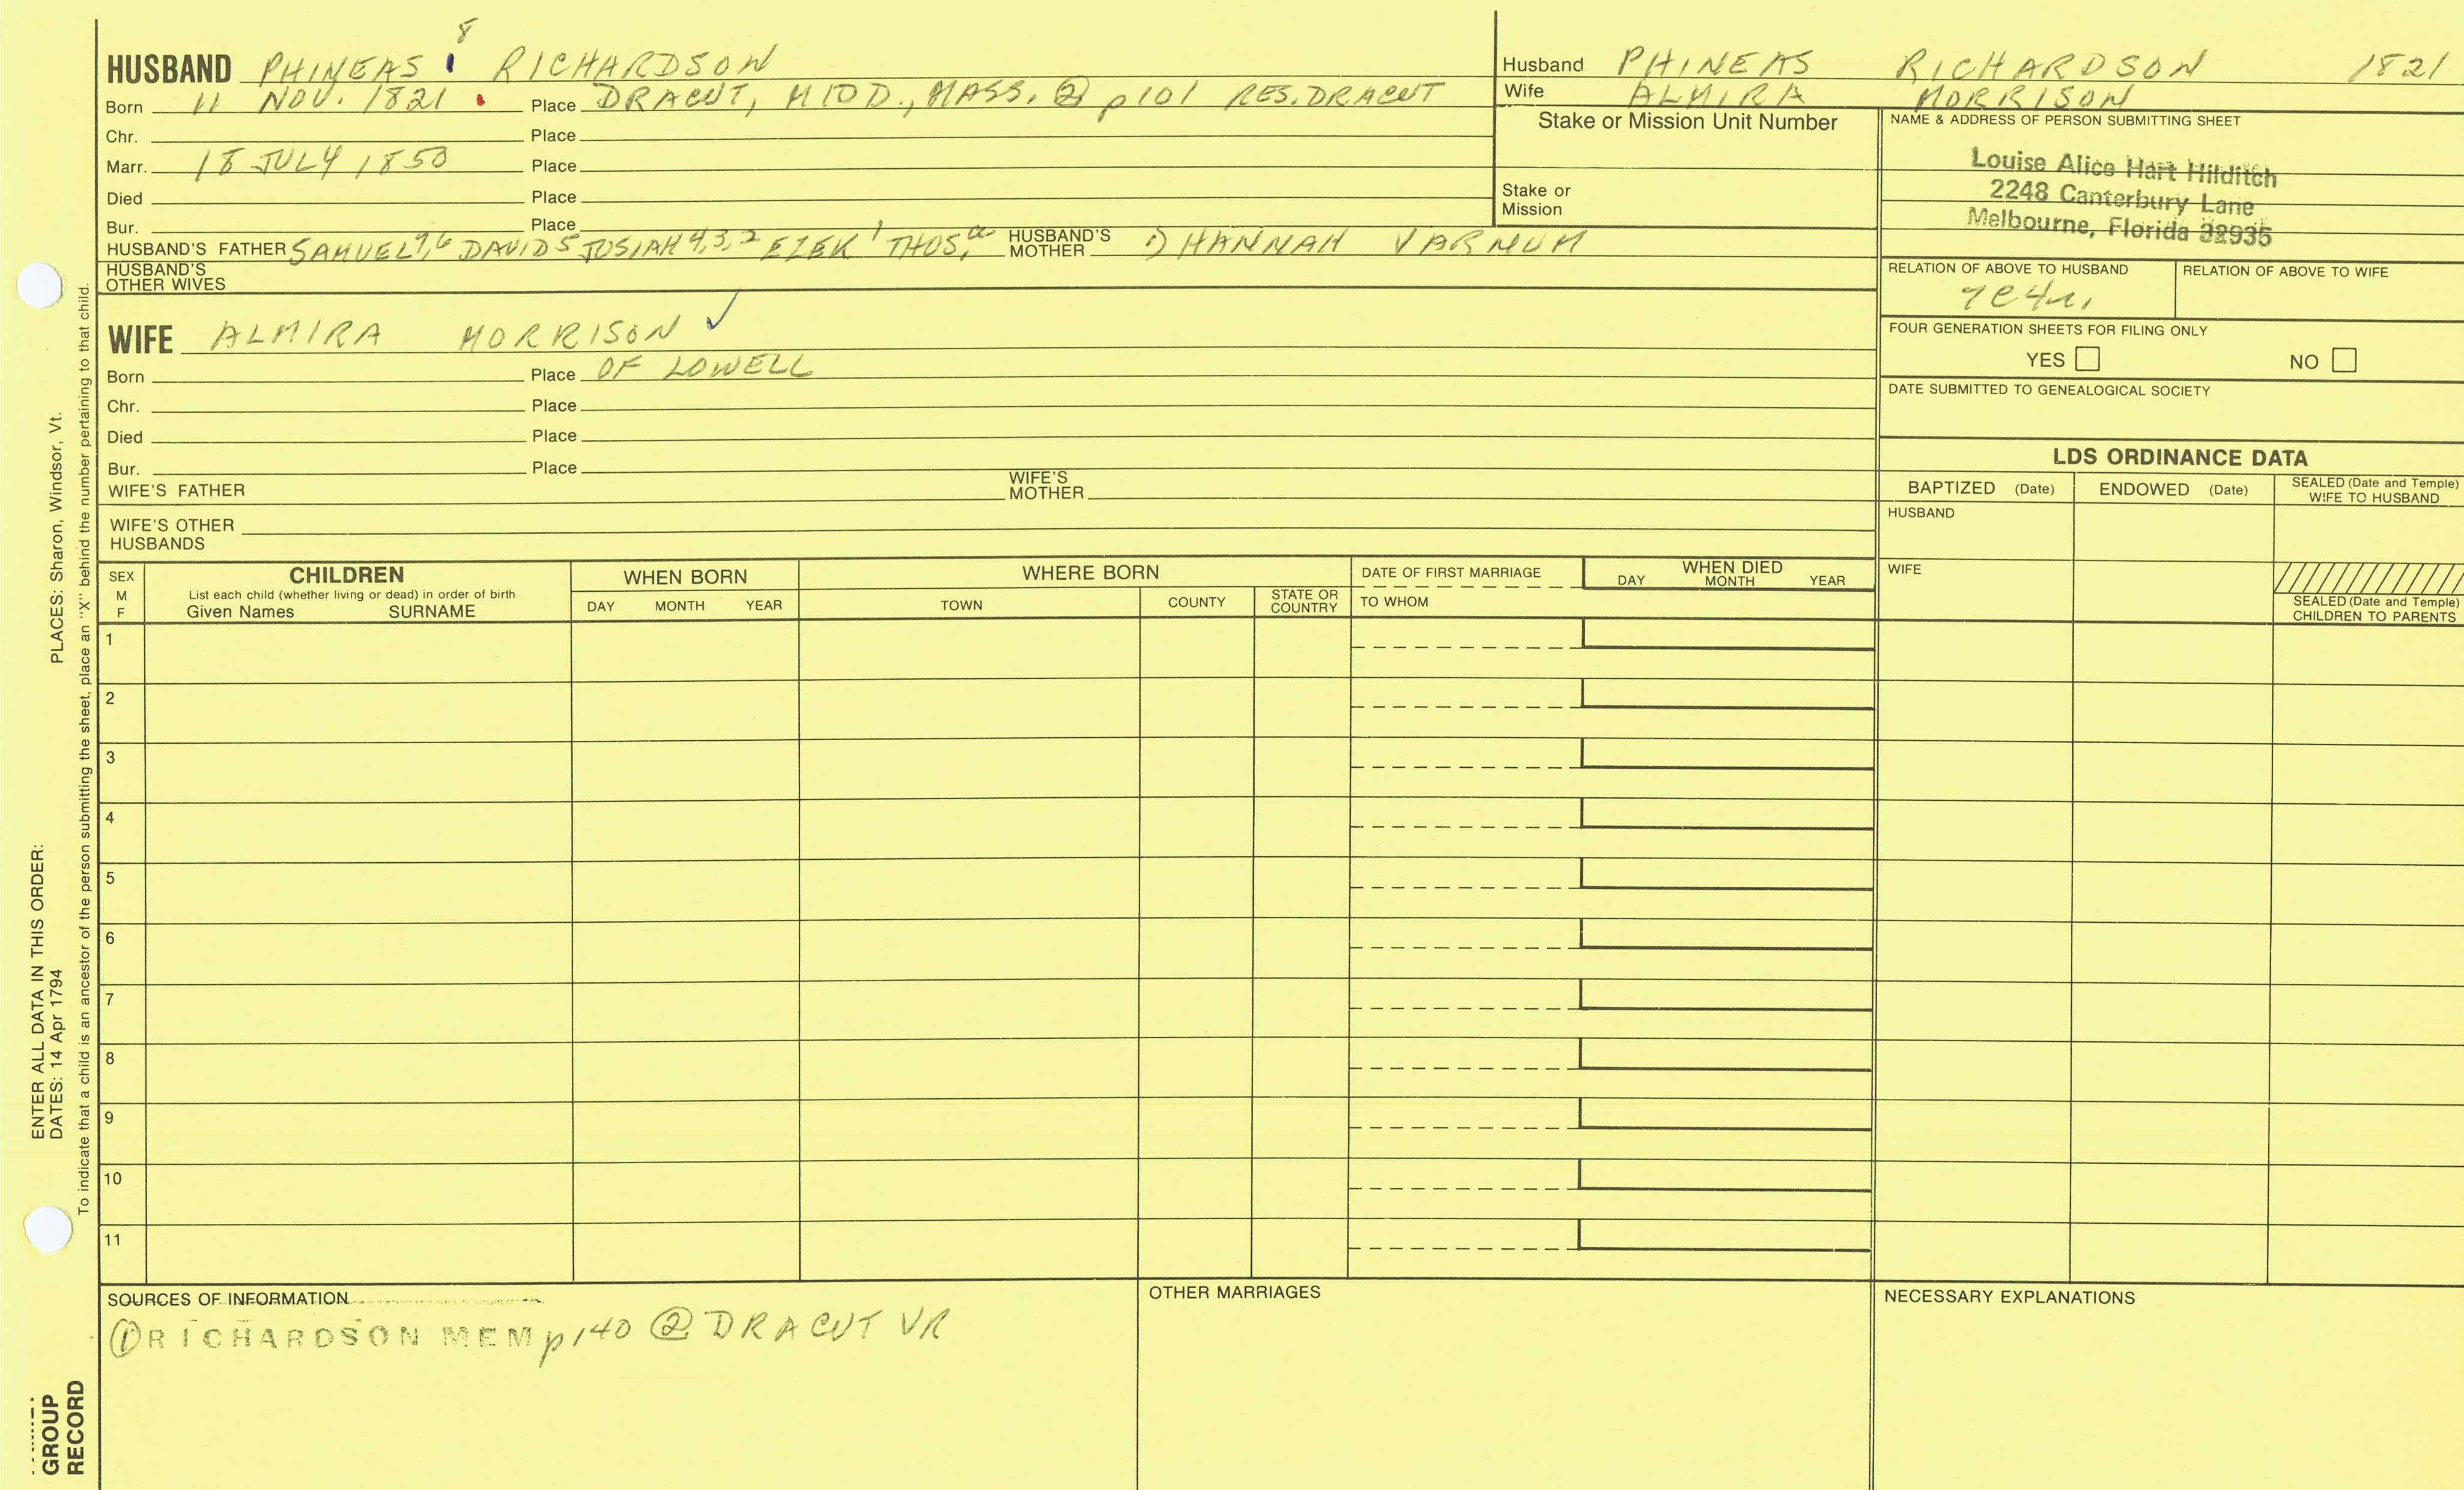 8
HUSBAND PHINEAS RICHARDSON
Born 11 NOV. 1821 Place DRACUT, MIDD., MASS. ② p101 RES. DRACUT
Chr. Place
Marr. 18 JULY 1850 Place
Died Place
Bur. Place
HUSBAND'S FATHER SAMUEL 7,6 DAVID 5 JOSIAH 4,3,2 EZEK 1 THOS, a HUSBAND'S MOTHER 1) HANNAH VARNUM
HUSBAND'S OTHER WIVES
WIFE ALMIRA MORRISON ✓
Born Place OF LOWELL
Chr. Place
Died Place
Bur. Place
WIFE'S FATHER WIFE'S MOTHER
WIFE'S OTHER HUSBANDS
Husband PHINEAS RICHARDSON 1821
Wife ALMIRA MORRISON
Stake or Mission Unit Number
Stake or Mission
NAME & ADDRESS OF PERSON SUBMITTING SHEET
Louise Alice Hart Hilditch
2248 Canterbury Lane
Melbourne, Florida 32935
RELATION OF ABOVE TO HUSBAND RELATION OF ABOVE TO WIFE
7C4R
FOUR GENERATION SHEETS FOR FILING ONLY
YES NO
DATE SUBMITTED TO GENEALOGICAL SOCIETY
LDS ORDINANCE DATA
BAPTIZED (Date) ENDOWED (Date) SEALED (Date and Temple) WIFE TO HUSBAND
HUSBAND
WIFE
SEALED (Date and Temple) CHILDREN TO PARENTS
SEX M F CHILDREN WHEN BORN WHERE BORN DATE OF FIRST MARRIAGE WHEN DIED
List each child (whether living or dead) in order of birth
Given Names SURNAME DAY MONTH YEAR TOWN COUNTY STATE OR COUNTRY TO WHOM DAY MONTH YEAR
1
2
3
4
5
6
7
8
9
10
11
SOURCES OF INFORMATION
① RICHARDSON MEM p140 ② DRACUT VR
OTHER MARRIAGES
NECESSARY EXPLANATIONS
ENTER ALL DATA IN THIS ORDER:
DATES: 14 Apr 1794 PLACES: Sharon, Windsor, Vt.
To indicate that a child is an ancestor of the person submitting the sheet, place an "X" behind the number pertaining to that child.
GROUP
RECORD